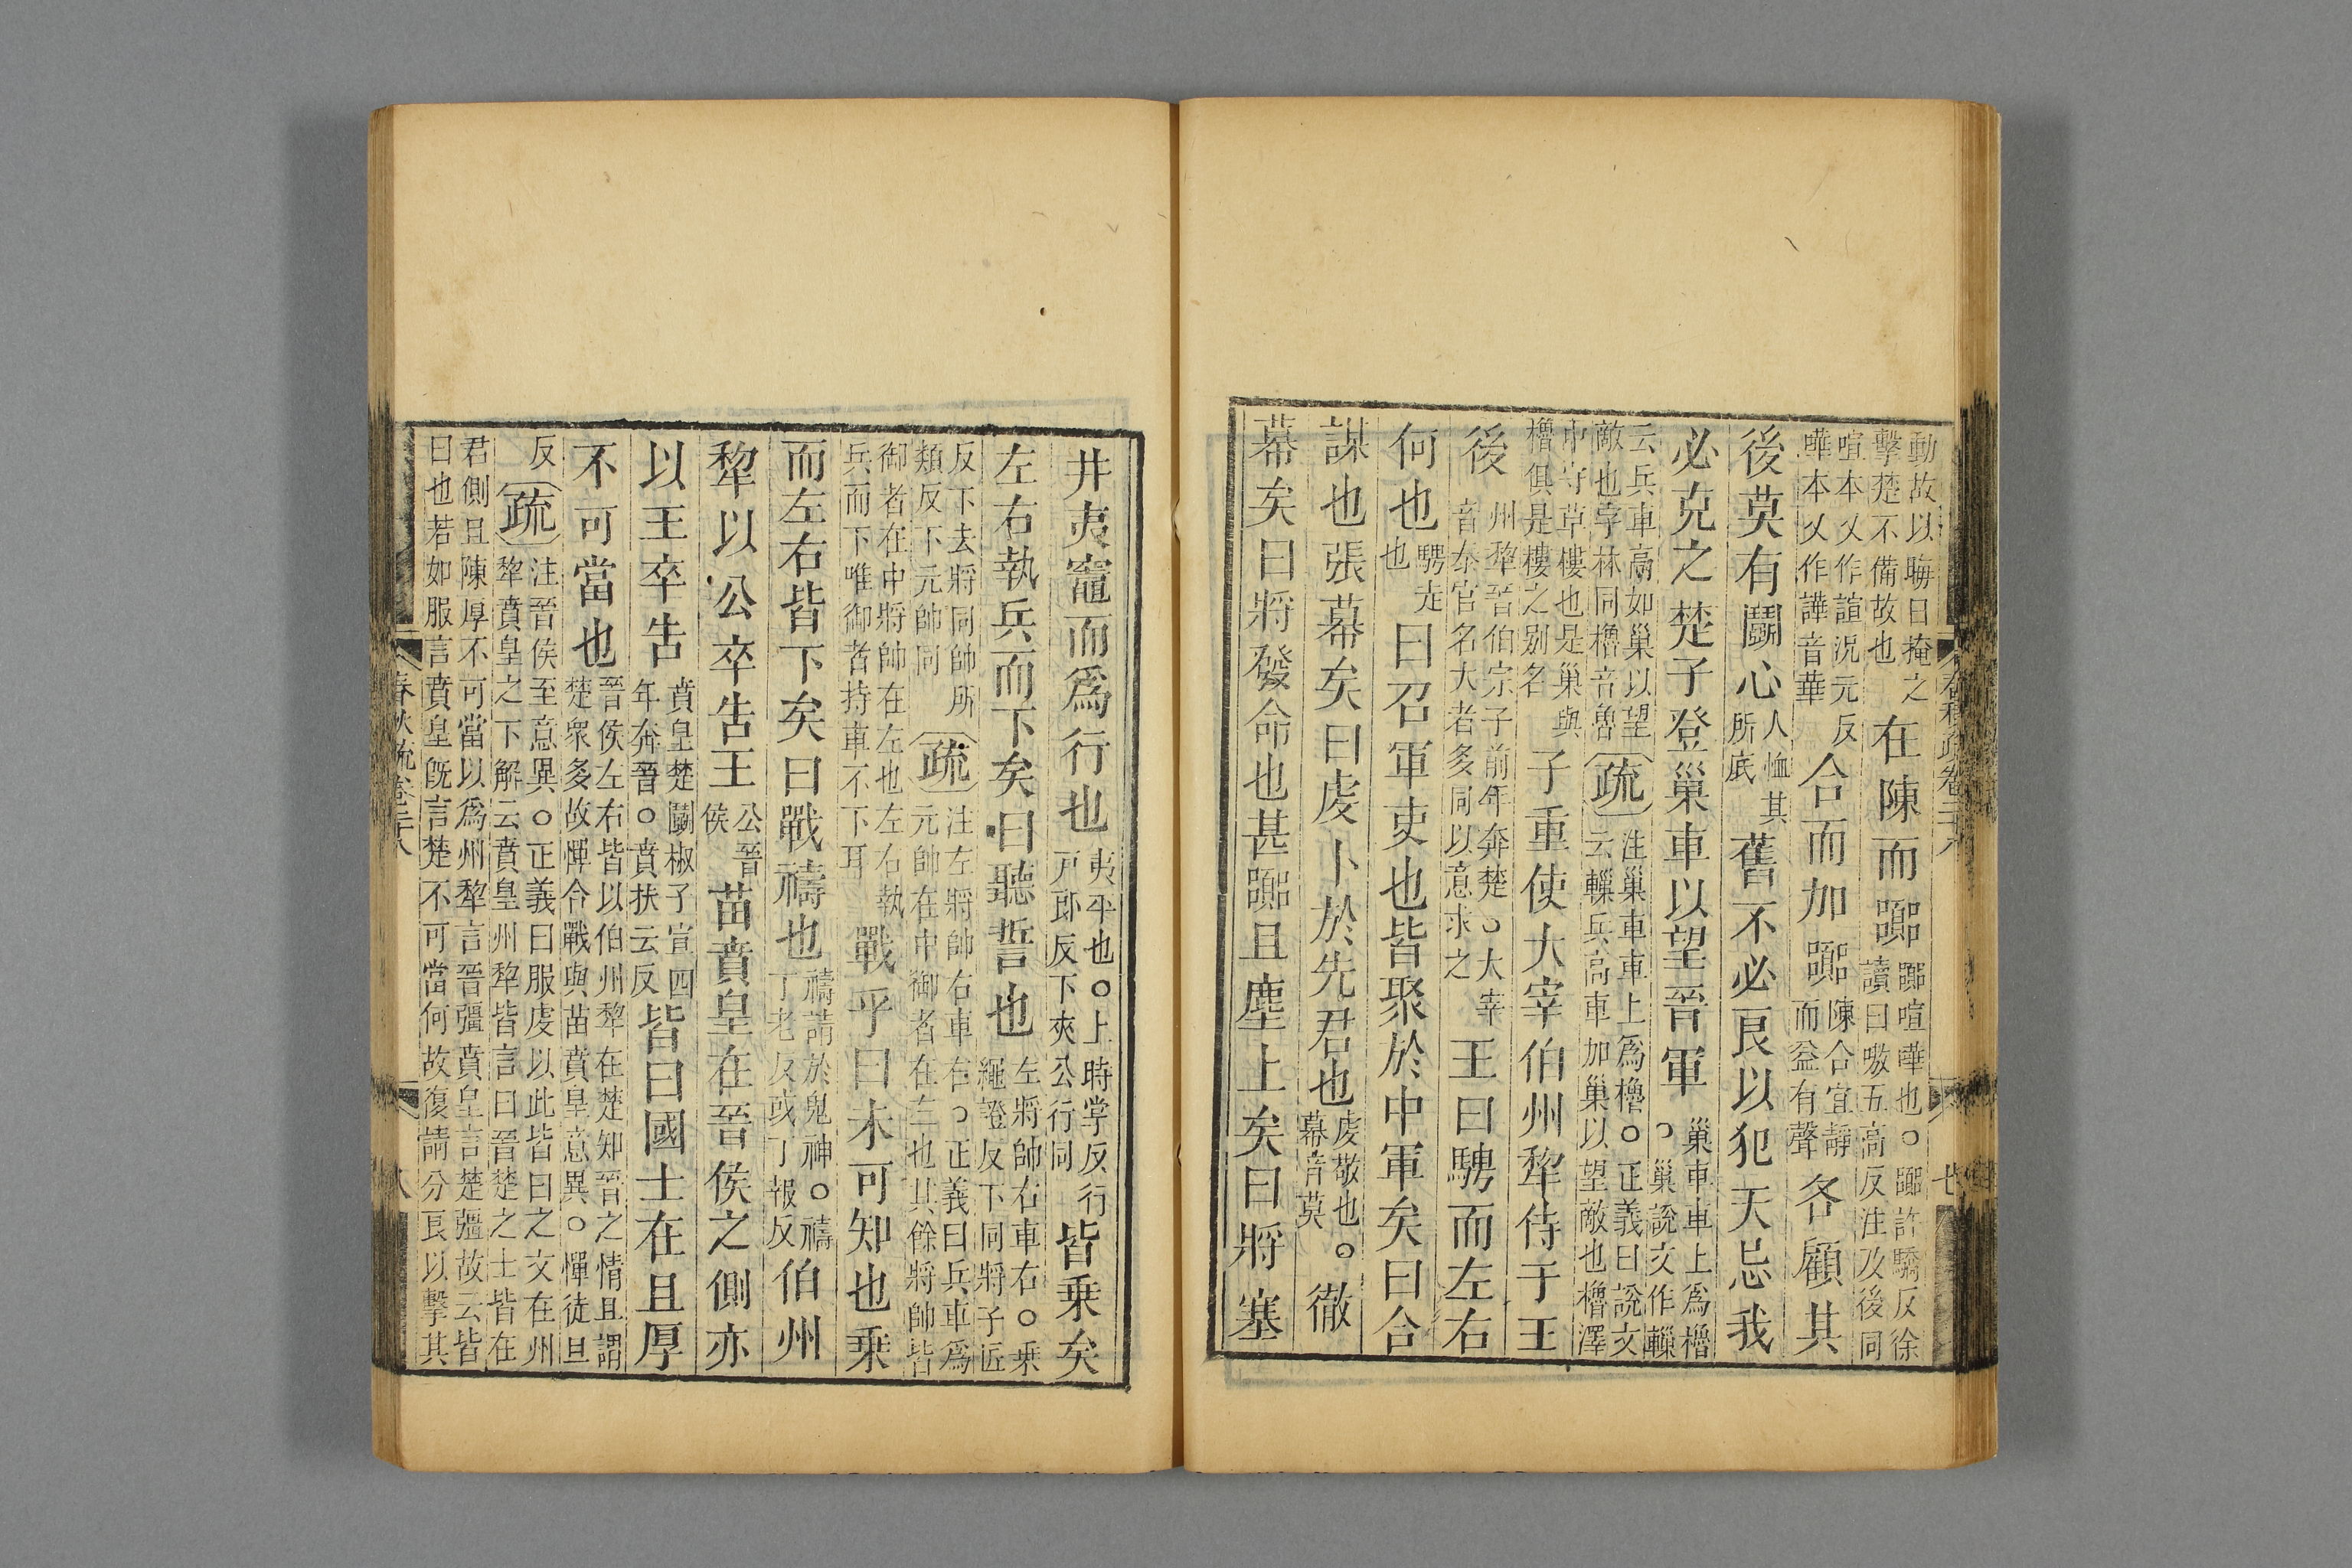 春秋疏卷二十八 七
動故以晦日掩之
擊楚不備故也
在陳而嚻
嚻喧嘩也○嚻許驕反徐
讀曰嗷五高反注及後同
喧本乂作諠況元反
嘩本乂作譁音華
合而加嚻
陳合宜靜
而益有聲
各顧其
後莫有鬭心
人恤其
所底
舊不必良以犯天忌我
必克之楚子登巢車以望晉軍
巢車車上爲櫓
○巢說文作轈
云兵車高如巢以望
敵也字林同櫓音魯
疏
注巢車車上爲櫓○正義曰說文
云轈兵高車加巢以望敵也櫓澤
中守草樓也是巢與
櫓俱是樓之别名
子重使大宰伯州犂侍于王
後
州犂晉伯宗子前年奔楚○大宰
音泰官名大者多同以意求之
王曰騁而左右
何也
騁走
也
曰召軍吏也皆聚於中軍矣曰合
謀也張幕矣曰虔卜於先君也
虔敬也○
幕音莫
徹
幕矣曰將發命也甚嚻且塵上矣曰將塞
井夷竈而爲行也
夷平也○上時掌反行
戸郎反下夾公行同
皆乗矣
左右執兵而下矣曰聽誓也
左將帥右車右○乗
繩證反下同將子匠
反下去將同帥所
類反下元帥同
疏
注左將帥右車右○正義曰兵車爲
元帥在中御者在左也其餘將帥皆
御者在中將帥在左也左右執
兵而下唯御者持車不下耳
戰乎曰未可知也乗
而左右皆下矣曰戰禱也
禱請於鬼神○禱
丁老反或丁報反
伯州
犂以公卒告王
公晉
侯
苗賁皇在晉侯之側亦
以王卒告
賁皇楚鬭椒子宣四
年奔晉○賁扶云反
皆曰國士在且厚
不可當也
晉侯左右皆以伯州犂在楚知晉之情且謂
楚衆多故憚合戰與苗賁皇意異○憚徒旦
反
疏
注晉侯至意異○正義曰服虔以此皆曰之文在州
犂賁皇之下解云賁皇州犂皆言曰晉楚之士皆在
君側且陳厚不可當以爲州犂言晉彊賁皇言楚彊故云皆
曰也若如服言賁皇旣言楚不可當何故復請分良以擊其
春秋疏卷二十八 八